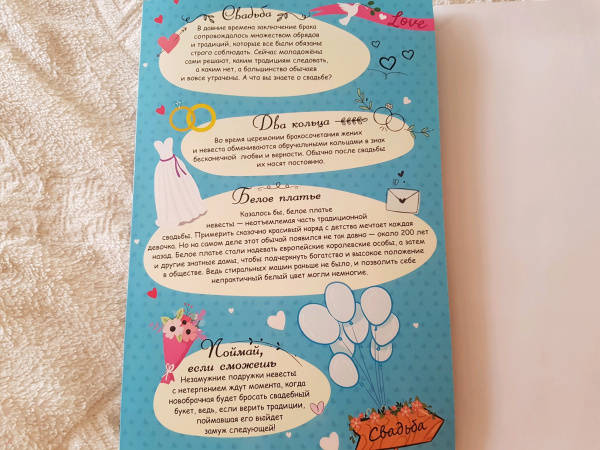 Свадьба
Love
В давние времена заключение брака
сопровождалось множеством обрядов
и традиций, которые все были обязаны
строго соблюдать. Сейчас молодожёны
сами решают, каким традициям следовать,
а каким нет, а большинство обычаев
и вовсе утрачены. А что вы знаете о свадьбе?
Два кольца
Во время церемонии бракосочетания жених
и невеста обмениваются обручальными кольцами в знак
бесконечной любви и верности. Обычно после свадьбы
их носят постоянно.
Белое платье
Казалось бы, белое платье
невесты — неотъемлемая часть традиционной
свадьбы. Примерить сказочно красивый наряд с детства мечтает каждая
девочка. Но на самом деле этот обычай появился не так давно — около 200 лет
назад. Белое платье стали надевать европейские королевские особы, а затем
и другие знатные дамы, чтобы подчеркнуть богатство и высокое положение
в обществе. Ведь стиральных машин раньше не было, и позволить себе
непрактичный белый цвет могли немногие.
Поймай,
если сможешь
Незамужние подружки невесты
с нетерпением ждут момента, когда
новобрачная будет бросать свадебный
букет, ведь, если верить традиции,
поймавшая его выйдет
замуж следующей!
Свадьба